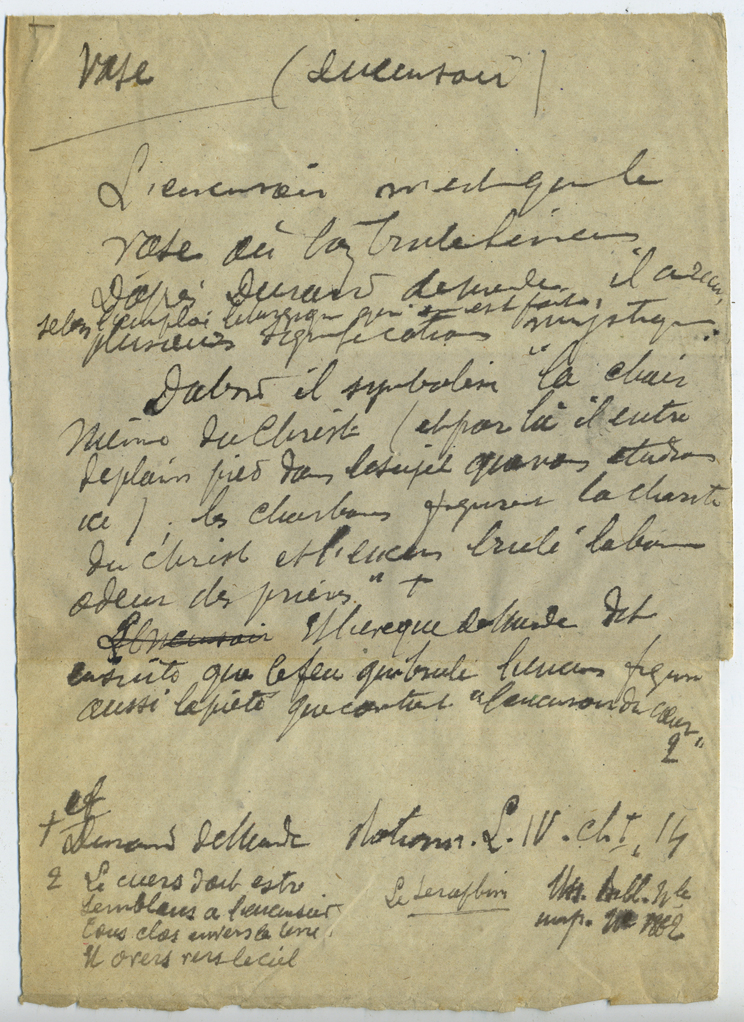 Vase (encensoir)
L'encensoir n'est que le
vase où l'on brule l'encens
D'après Durand de Mende, il a reçu,
selon l'emploi liturgique qui en est fait,
plusieurs significations mystiques.
D'abord il symbolise "la chair
même du Christ (et par là il entre
de plain pied dans le sujet que nous étudions
ici), les charbons figurent la charité
du Christ et l'encens brulé la bonne
odeur des prières." +
L'encensoir L'Evêque de Mende dit
ensuite que le feu qui brule l'encens figure
aussi la piété que contient "l'encensoir du cœur"
2
cf
+ Durand de Mende Rational. L. IV. ch I, 14
2 Le cuers doit estre
semblans a l'encensoir
tous clos envers la terre
Et overs vers le ciel
Le Séraphin Ms. Bibl. Nle